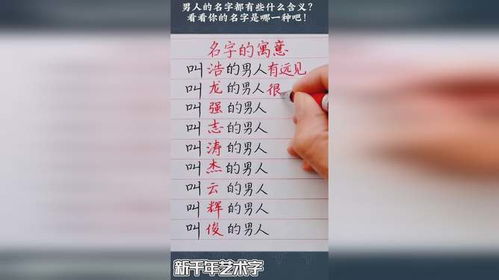 男人的名字都有些什么含义？
看看你的名字是哪一种吧！
名字的寓意
叫浩的男人有远见
叫龙的男人很
叫强的男人
叫志的男人
叫涛的男人
叫杰的男人
叫云的男人
叫辉的男人
叫俊的男人
新千年艺术字